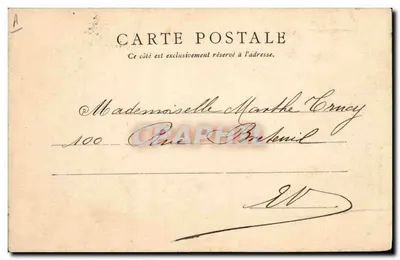 A
CARTE POSTALE
Ce côté est exclusivement réservé à l'adresse.
Mademoiselle Marthe Truey
100 Rue Breteuil
EV